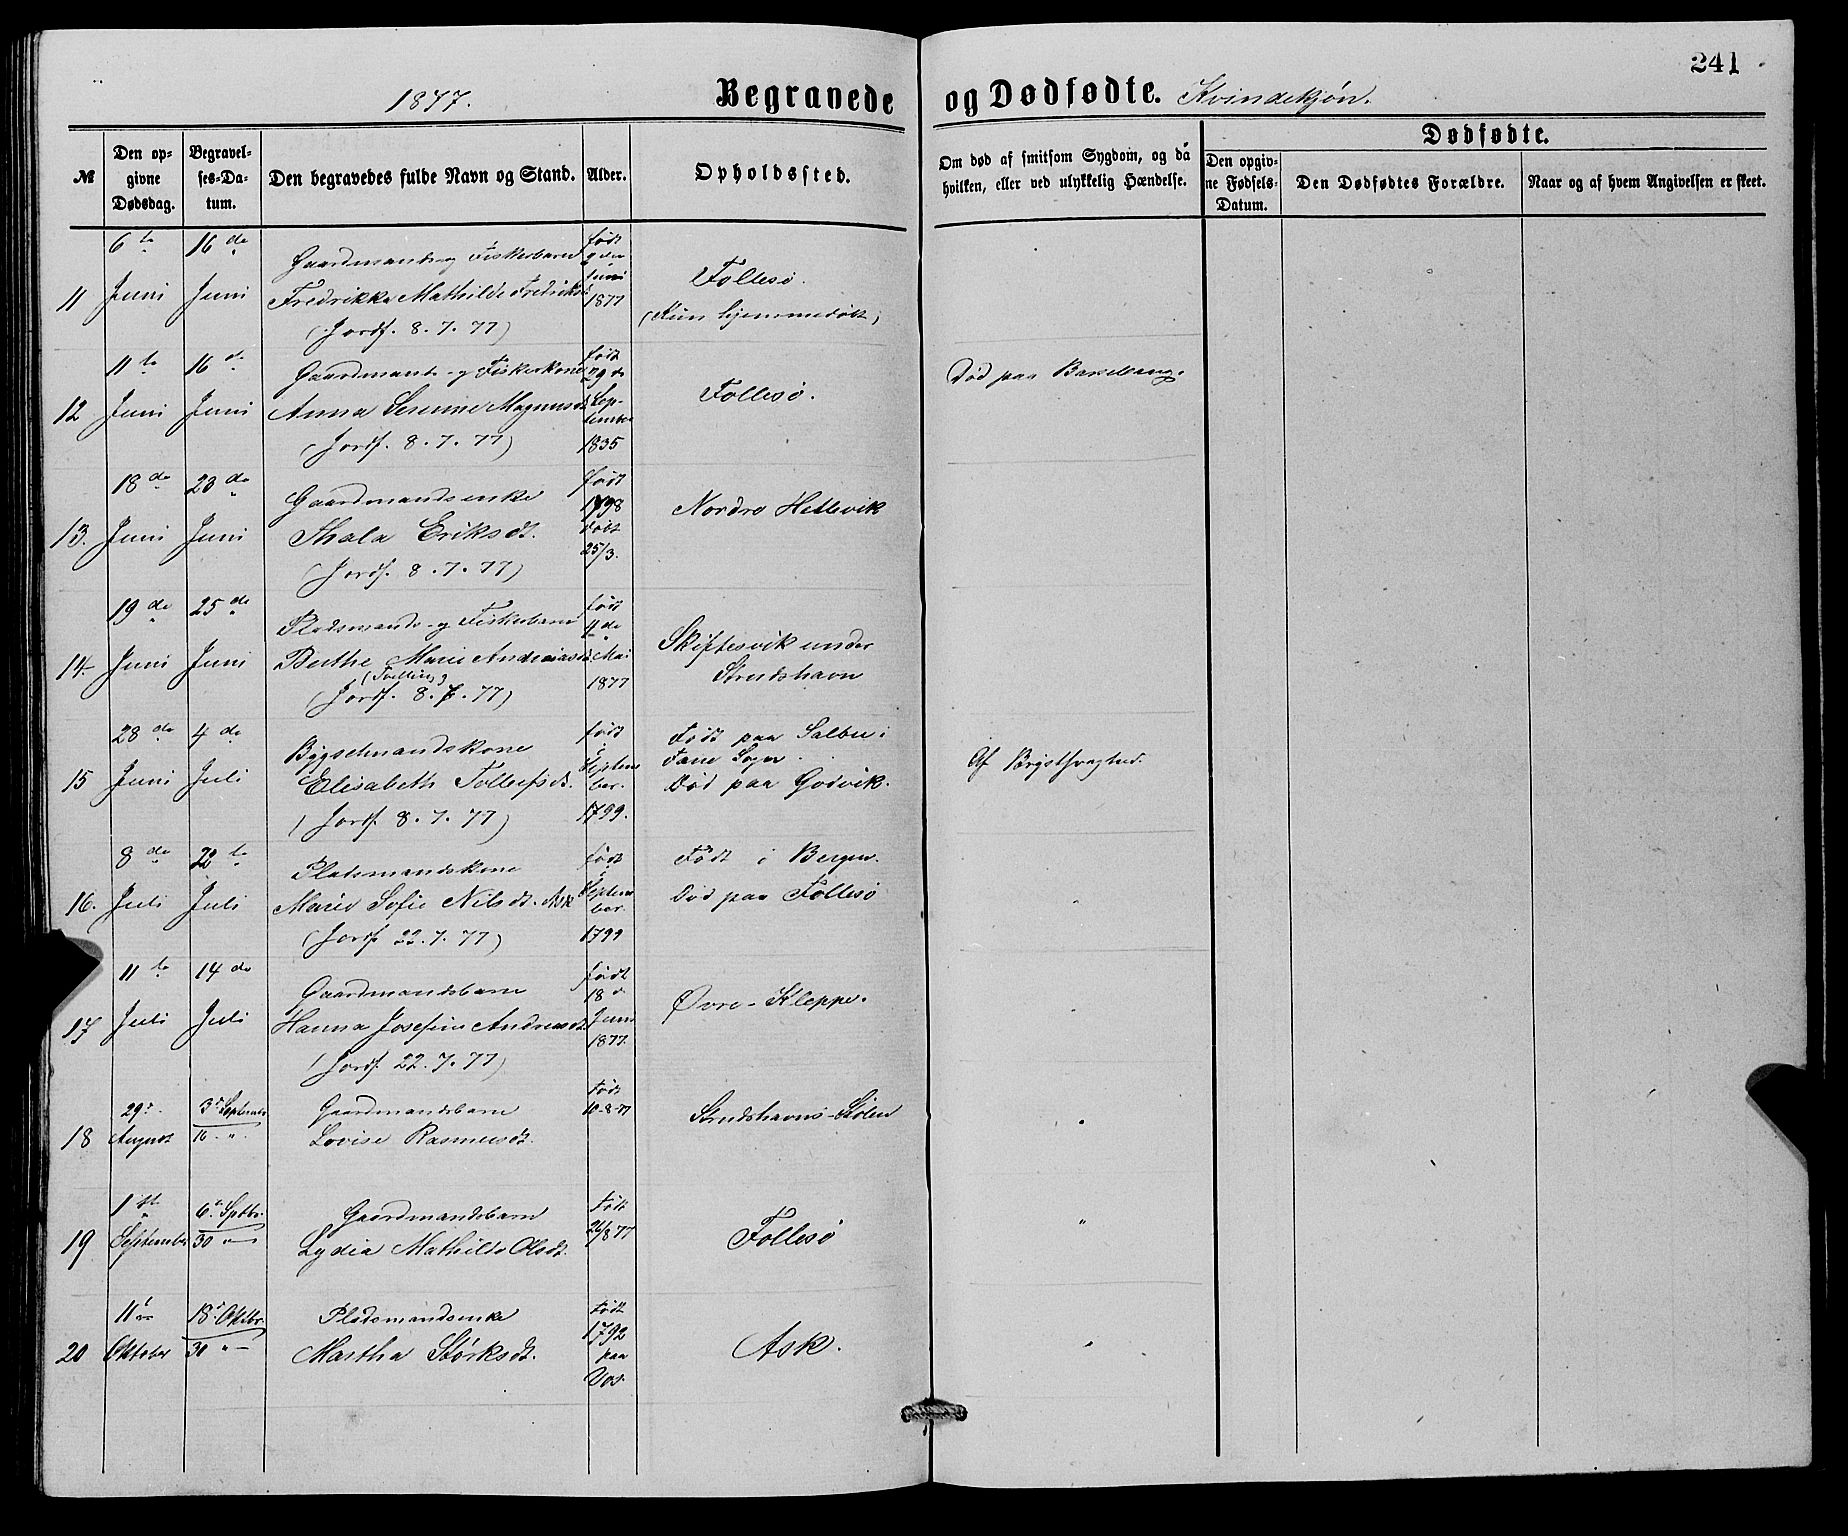 241
1877. Begravede og Dødfødte. Kvindekjøn.
№
Den opgivne Dødsdag.
Begravelses-Datum.
Den begravedes fulde Navn og Stand.
Alder.
Opholdssted.
Om død af smitsom Sygdom, og då hvilken, eller ved ulykkelig Hændelse.
Dødfødte.
Den opgivne Fødsels-Datum.
Den Dødfødtes Forældre.
Naar og af hvem Angivelsen er skeet.
11 6te Juni 16de Juni
Gaardmands- og Fiskerbarn
Fredrikke Mathilde Fredriksd.
(Jordf. 8.7.77)
født Juni 1877
Follesø.
(Kun hjemmedøbt)
12 11te Juni 16de Juni
Gaardmands- og Fiskerkone
Anna Serine Magnusdt.
(Jordf. 8.7.77)
født 29de September 1835
Follesø.
Død paa Barselseng.
13. 18de Juni 23de Juni
Gaardmandsenke
Thala Eriksdt.
(Jordf. 8.7.77)
født 1798 døbt 25/3.
Nordre Hetlevik
14. 19de Juni 25de Juni
Pladsmands- og Fiskerbarn
Berthe Marie Andreasd.
(Tvilling)
(Jordf. 8.7.77)
født 4de Mai 1877
Skiftesvik under
Strudshavn
15 28de Juni 4de Juli
Bygselmandskone
Elisabeth Tollefsdt.
(Jordf. 8.7.77)
født i September. 1799.
Født paa Salbu i
Fane Sogn.
Død paa Godvik.
Af Brystsvaghed.
16. 8de Juli 22de Juli
Pladsmandskone
Marie Sofie Nilsdt. Ask
(Jordf. 22.7.77)
født i September. 1799
Født i Bergen.
Død paa Follesø
17 11te Juli 14de Juli
Gaardmandsbarn
Hanna Josefine Andreasdt.
(Jordf. 22.7.77)
født 18d Juni 1877.
Øvre-Kleppe.
18 29d. August 3d September 16 "
Gaardmandsbarn
Lovise Rasmusdt.
Født 10-8-77
Strudshavns-Stølen
19 1ste September 6te Septbr. 30 "
Gaardmandsbarn
Lydia Mathilde Olsdt.
Født 26/8 77
Follesø
20 11te Oktober 18d Oktbr. 30 "
Pladsmandsenke
Martha Størksdt.
Født 1792 paa Vos.
Ask.